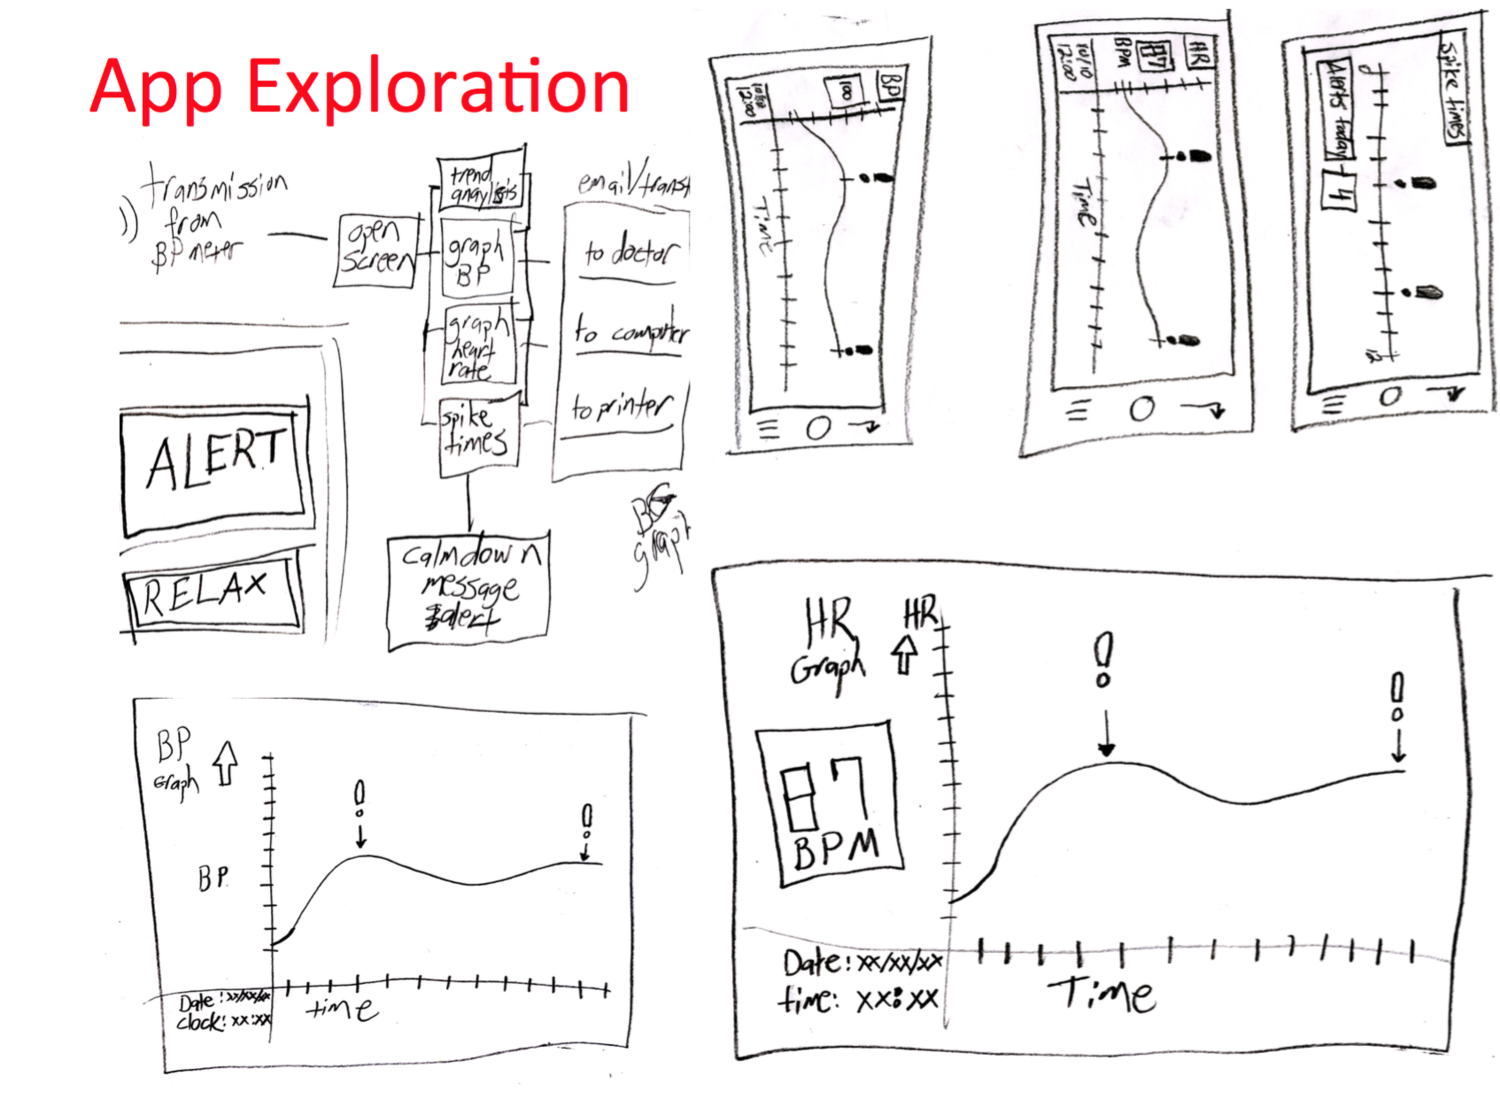 App Exploration
transmission
from
BP meter
open
screen
trend
anaylisis
graph
BP
graph
heart
rate
spike
times
calmdown
message
alert
to doctor
to computer
to printer
graph
ALERT
RELAX
BP
100
12:00
TIME
HR
87
BPM
10/10
12:00
Time
spike times
Alerts today
4
12
BP
Graph
BP
!
!
Date: xx/xx/xx
clock: xx:xx
time
HR
Graph
HR
87
BPM
!
!
Date: xx/xx/xx
time: xx:xx
Time